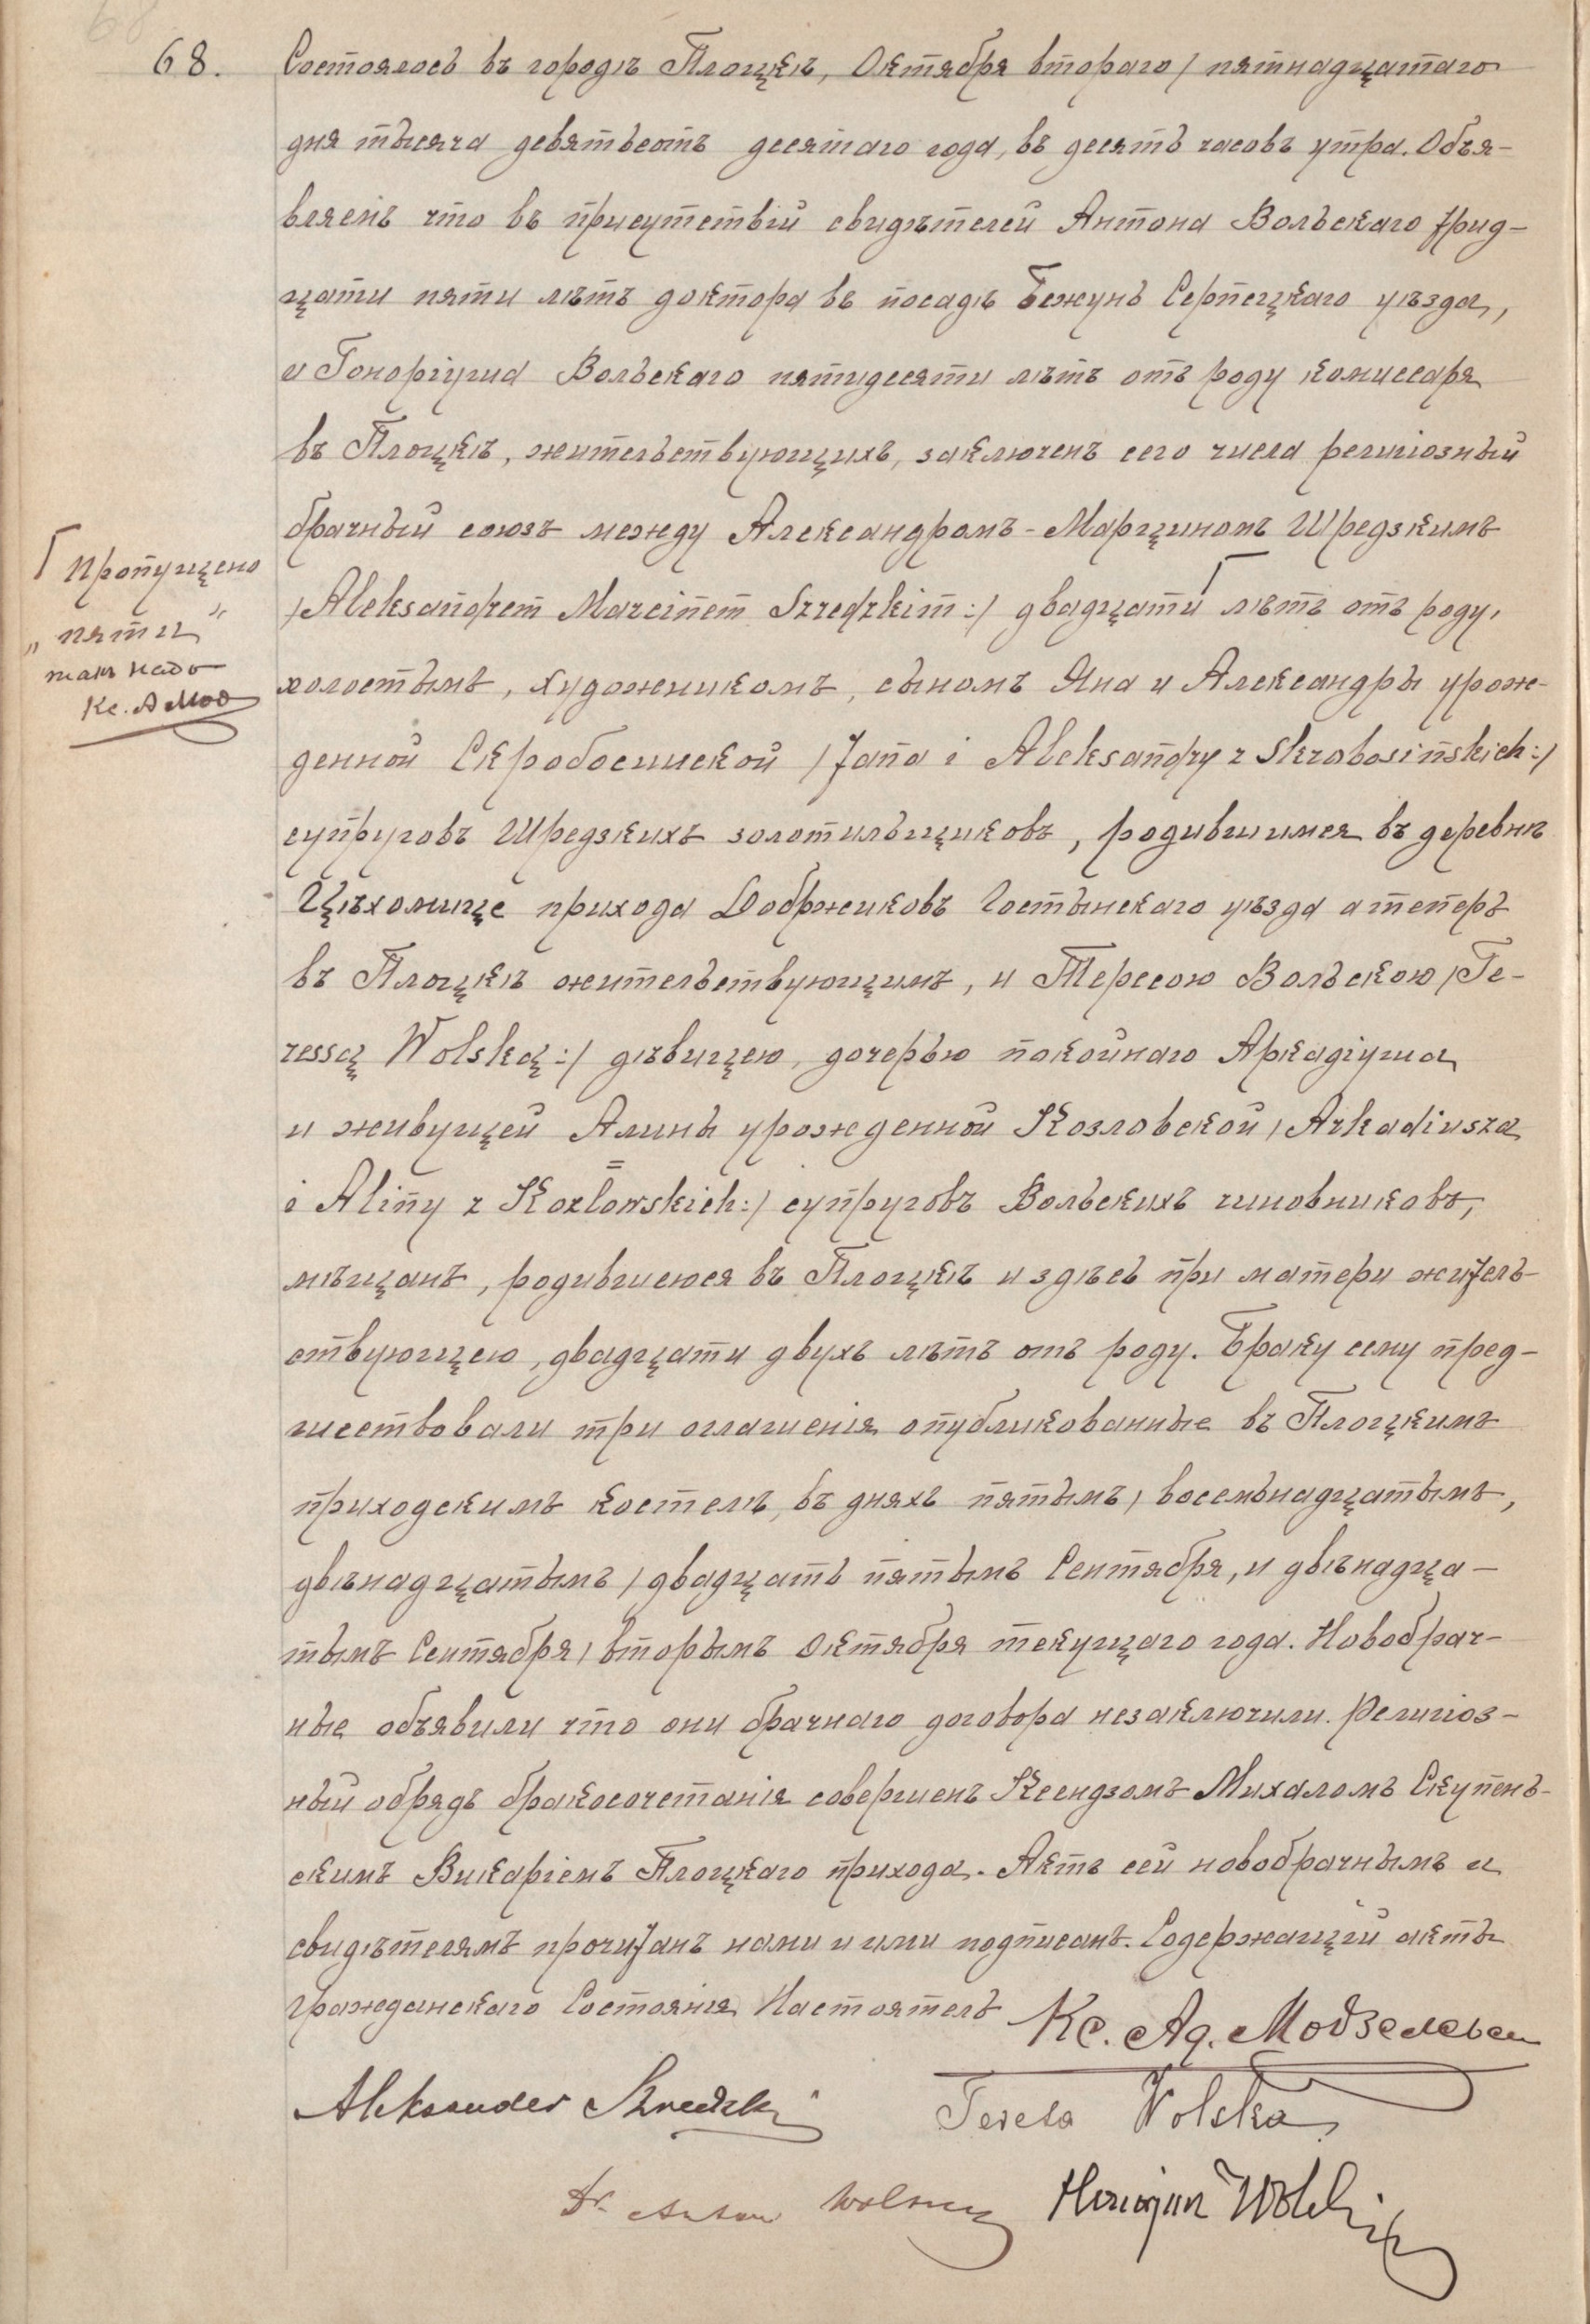 68. Состоялось въ городѣ Плоцкѣ, Октября втораго / пятнадцатаго
дня тысяча девятьсотъ десятаго года, въ десять часовъ утра. Объя-
вляемъ что въ присутствіи свидѣтелей Антона Вольскаго трид-
цати пяти лѣтъ доктора въ посадѣ Бежунь Серпецкаго уѣзда,
и Гоноріуша Вольскаго пятидесяти лѣтъ отъ роду комиссара
въ Плоцкѣ, жительствующихъ, заключенъ сего числа религіозный
брачный союзъ между Александромъ-Марциномъ Шредзкимъ
/Aleksandrem Marcinem Szredzkim:/ двадцати Г лѣтъ отъ роду,
Г Пропущено
„пяти”
такъ надо
Кс. А Мод
холостымъ, художникомъ, сыномъ Яна и Александры урож-
денной Скробосинской /Jana i Aleksandry z Skrobosińskich:/
супруговъ Шредзкихъ золотильщиковъ, родившимся въ деревнѣ
Цѣхомице прихода Добржиковъ Гостынскаго уѣзда а теперь
въ Плоцкѣ жительствующимъ, и Тересою Вольскою /Te-
ressą Wolską:/ дѣвицею, дочерью покойнаго Аркадіуша
и живущей Алины урожденной Козловской /Arkadiusza
i Aliny z Kozłowskich:/ супруговъ Вольскихъ чиновниковъ,
мѣщанъ, родившеюся въ Плоцкѣ и здѣсь при матери житель-
ствующею, двадцати двухъ лѣтъ отъ роду. Браку сему пред-
шествовали три оглашенія опубликованные въ Плоцкимъ
приходскимъ костелѣ, въ дняхъ пятымъ / восемьнадцатымъ,
двѣнадцатымъ / двадцать пятымъ Сентября, и двѣнадца-
тымъ Сентября / вторымъ Октября текущаго года. Новобрач-
ные объявили что они брачнаго договора незаключили. Религіоз-
ный обрядъ бракосочетанія совершенъ Ксендзомъ Михаломъ Скупень-
скимъ Викаріемъ Плоцкаго прихода. Актъ сей новобрачнымъ и
свидѣтелямъ прочитанъ нами и ими подписанъ. Содержащій акты
Гражданскаго Состоянія Настоятель Кс. Ад. Модзелевси
Aleksander Szredzki Teresa Wolska
Dr Anton Wolski Honorjusz Wolski